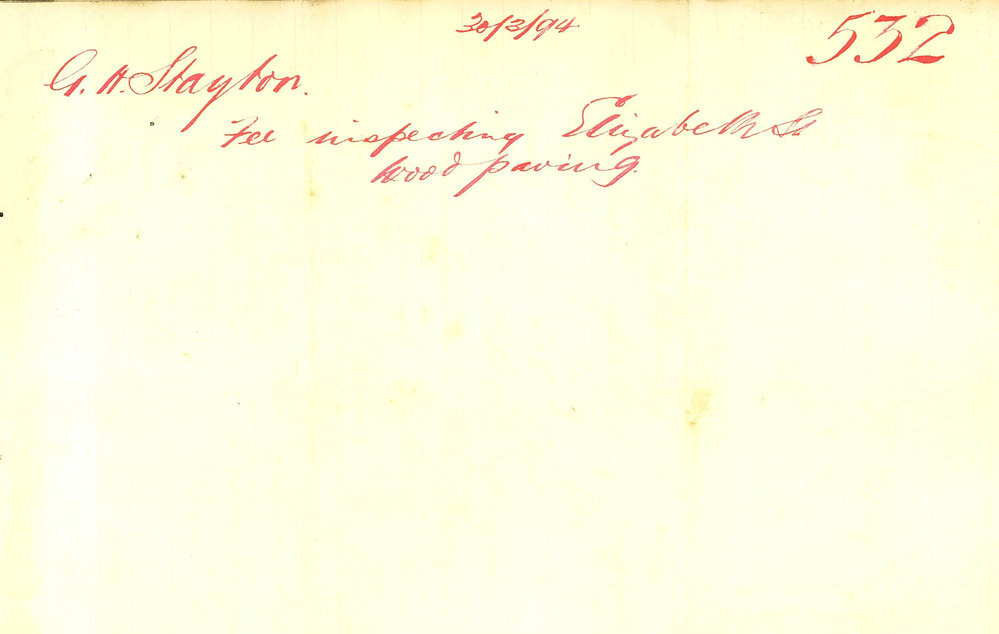 30/3/94
532
G. H. Stayton.
Fee inspecting Elizabeth St
Wood paving.